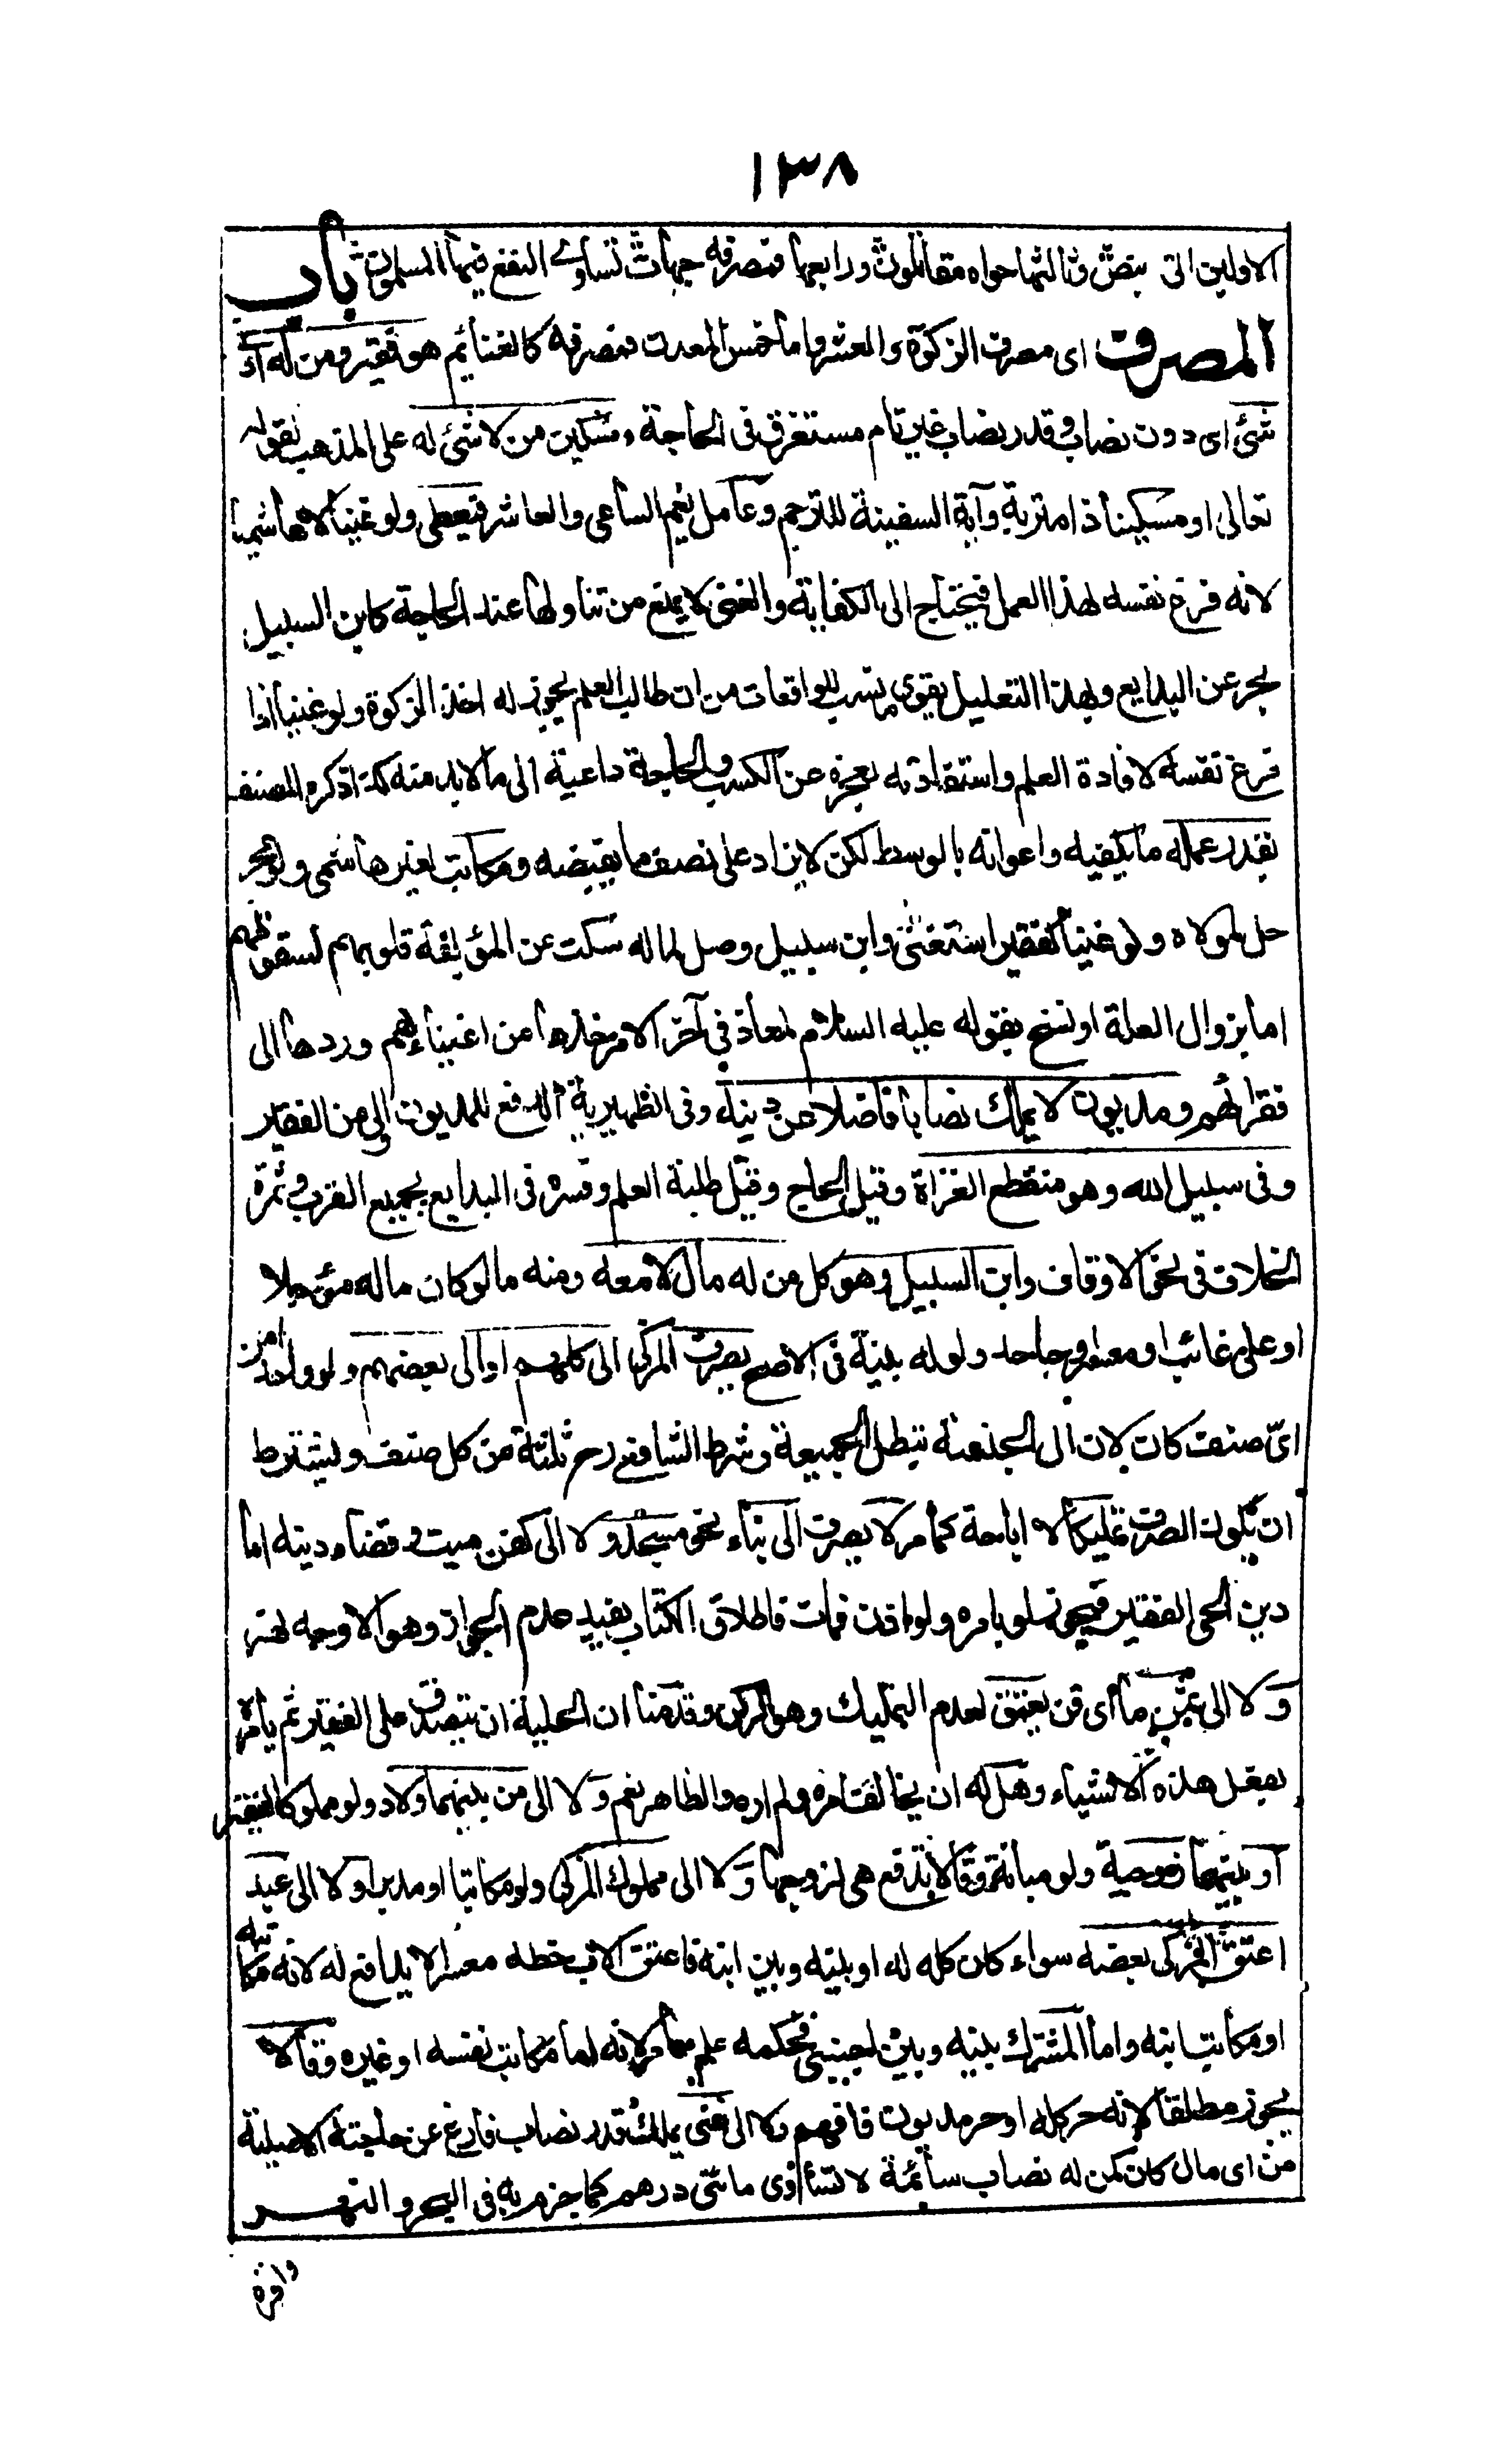 ١٣٨
الاولين اتى بنص وثالثها حواه مقاتلون ورابعها فمصرفه جهات تساوى النفع فيها المسلمون باب
المصرف اى مصرف الزكوة والعشر واما خمس المعدن فمصرفه كالغنائم هو فقير ومن له ادنى
شئ اى دون نصاب او قدر نصاب غير تام مستغرق فى الحاجة ومسكين من لا شئ له على المذهب لقوله
تعالى او مسكينا ذا متربة وآية السفينة للترحم وعامل يعم الساعى والعاشر فيعطى ولو غنيا لا هاشميا
لانه فرغ نفسه لهذا العمل فيحتاج الى الكفاية والغنى لا يمنع من تناولها عند الحاجة كابن السبيل
بحر عن البدايع وبهذا التعليل يقوى ما نسب للواقعات من ان طالب العلم يجوز له اخذ الزكوة ولو غنيا اذا
فرغ نفسه لافادة العلم واستفادته لعجزه عن الكسب والحاجة داعية الى ما لا بد منه كذا ذكره المصنف
بقدر عمله ما يكفيه واعوانه بالوسط لكن لا يزاد على نصف ما يقبضه ومكاتب لغير هاشمى ولو عجز
حل لمولاه ولو غنيا كفقير استغنى وابن سبيل وصل لماله سكت عن المؤلفة قلوبهم لسقوطهم
اما بزوال العلة او نسخ بقوله عليه السلام لمعاذ فى آخر الامر خذها من اغنيائهم وردها الى
فقرائهم ومديون لا يملك نصابا فاضلا عن دينه وفى الظهيرية الدفع للمديون اولى من الفقير
وفى سبيل الله وهو منقطع الغزاة وقيل الحاج وقيل طلبة العلم وفسره فى البدايع بجميع القرب وثمرة
الخلاف فى نحو الاوقاف وابن السبيل وهو كل من له مال لا معه ومنه ما لو كان ماله مؤجلا
او على غائب او معسر او جاحد ولو له بينة فى الاصح يصرف المزكى الى كلهم او الى بعضهم ولو واحدا من
اىّ صنف كان لان ال الجنسية تبطل الجمعية وشرط الشافعى رح ثلثة من كل صنف ويشترط
ان يكون الصرف تمليكا لا اباحة كما مر لا يصرف الى بناء نحو مسجد ولا الى كفن ميت وقضاء دينه اما
دين الحى الفقير فيجوز لو بامره ولو اذن فمات فاطلاق الكتاب يفيد عدم الجواز وهو الاوجه نهر
ولا الى ثمن ما اى قن يعتق لعدم التمليك وهو الركن وقدمنا ان الحيلة ان يتصدق على الفقير ثم يأمره
بفعل هذه الاشياء وهل له ان يخالف امره ولم اره والظاهر نعم ولا الى من بينهما ولاد ولو مملوكا لفقير
او بينهما زوجية ولو مبانة وقالا تدفع هى لزوجها ولا الى مملوك المزكى ولو مكاتبا او مدبرا ولا الى عبد
اعتق المزكى بعضه سواء كان كله له او بينه وبين ابنه فاعتق الاب حظه معسرا لا يدفع له لانه مكاتبه
او مكاتب ابنه واما المشترك بينه وبين اجنبى فحكمه علم مما مر لانه اما مكاتب نفسه او غيره وقالا
يجوز مطلقا لانه حر كله او حر مديون فافهم ولا الى غنى يملك قدر نصاب فارغ عن حاجته الاصلية
من اى مال كان كمن له نصاب سائمة لا تساوى مائتى درهم كما جزم به فى البحر والنهر
واقره